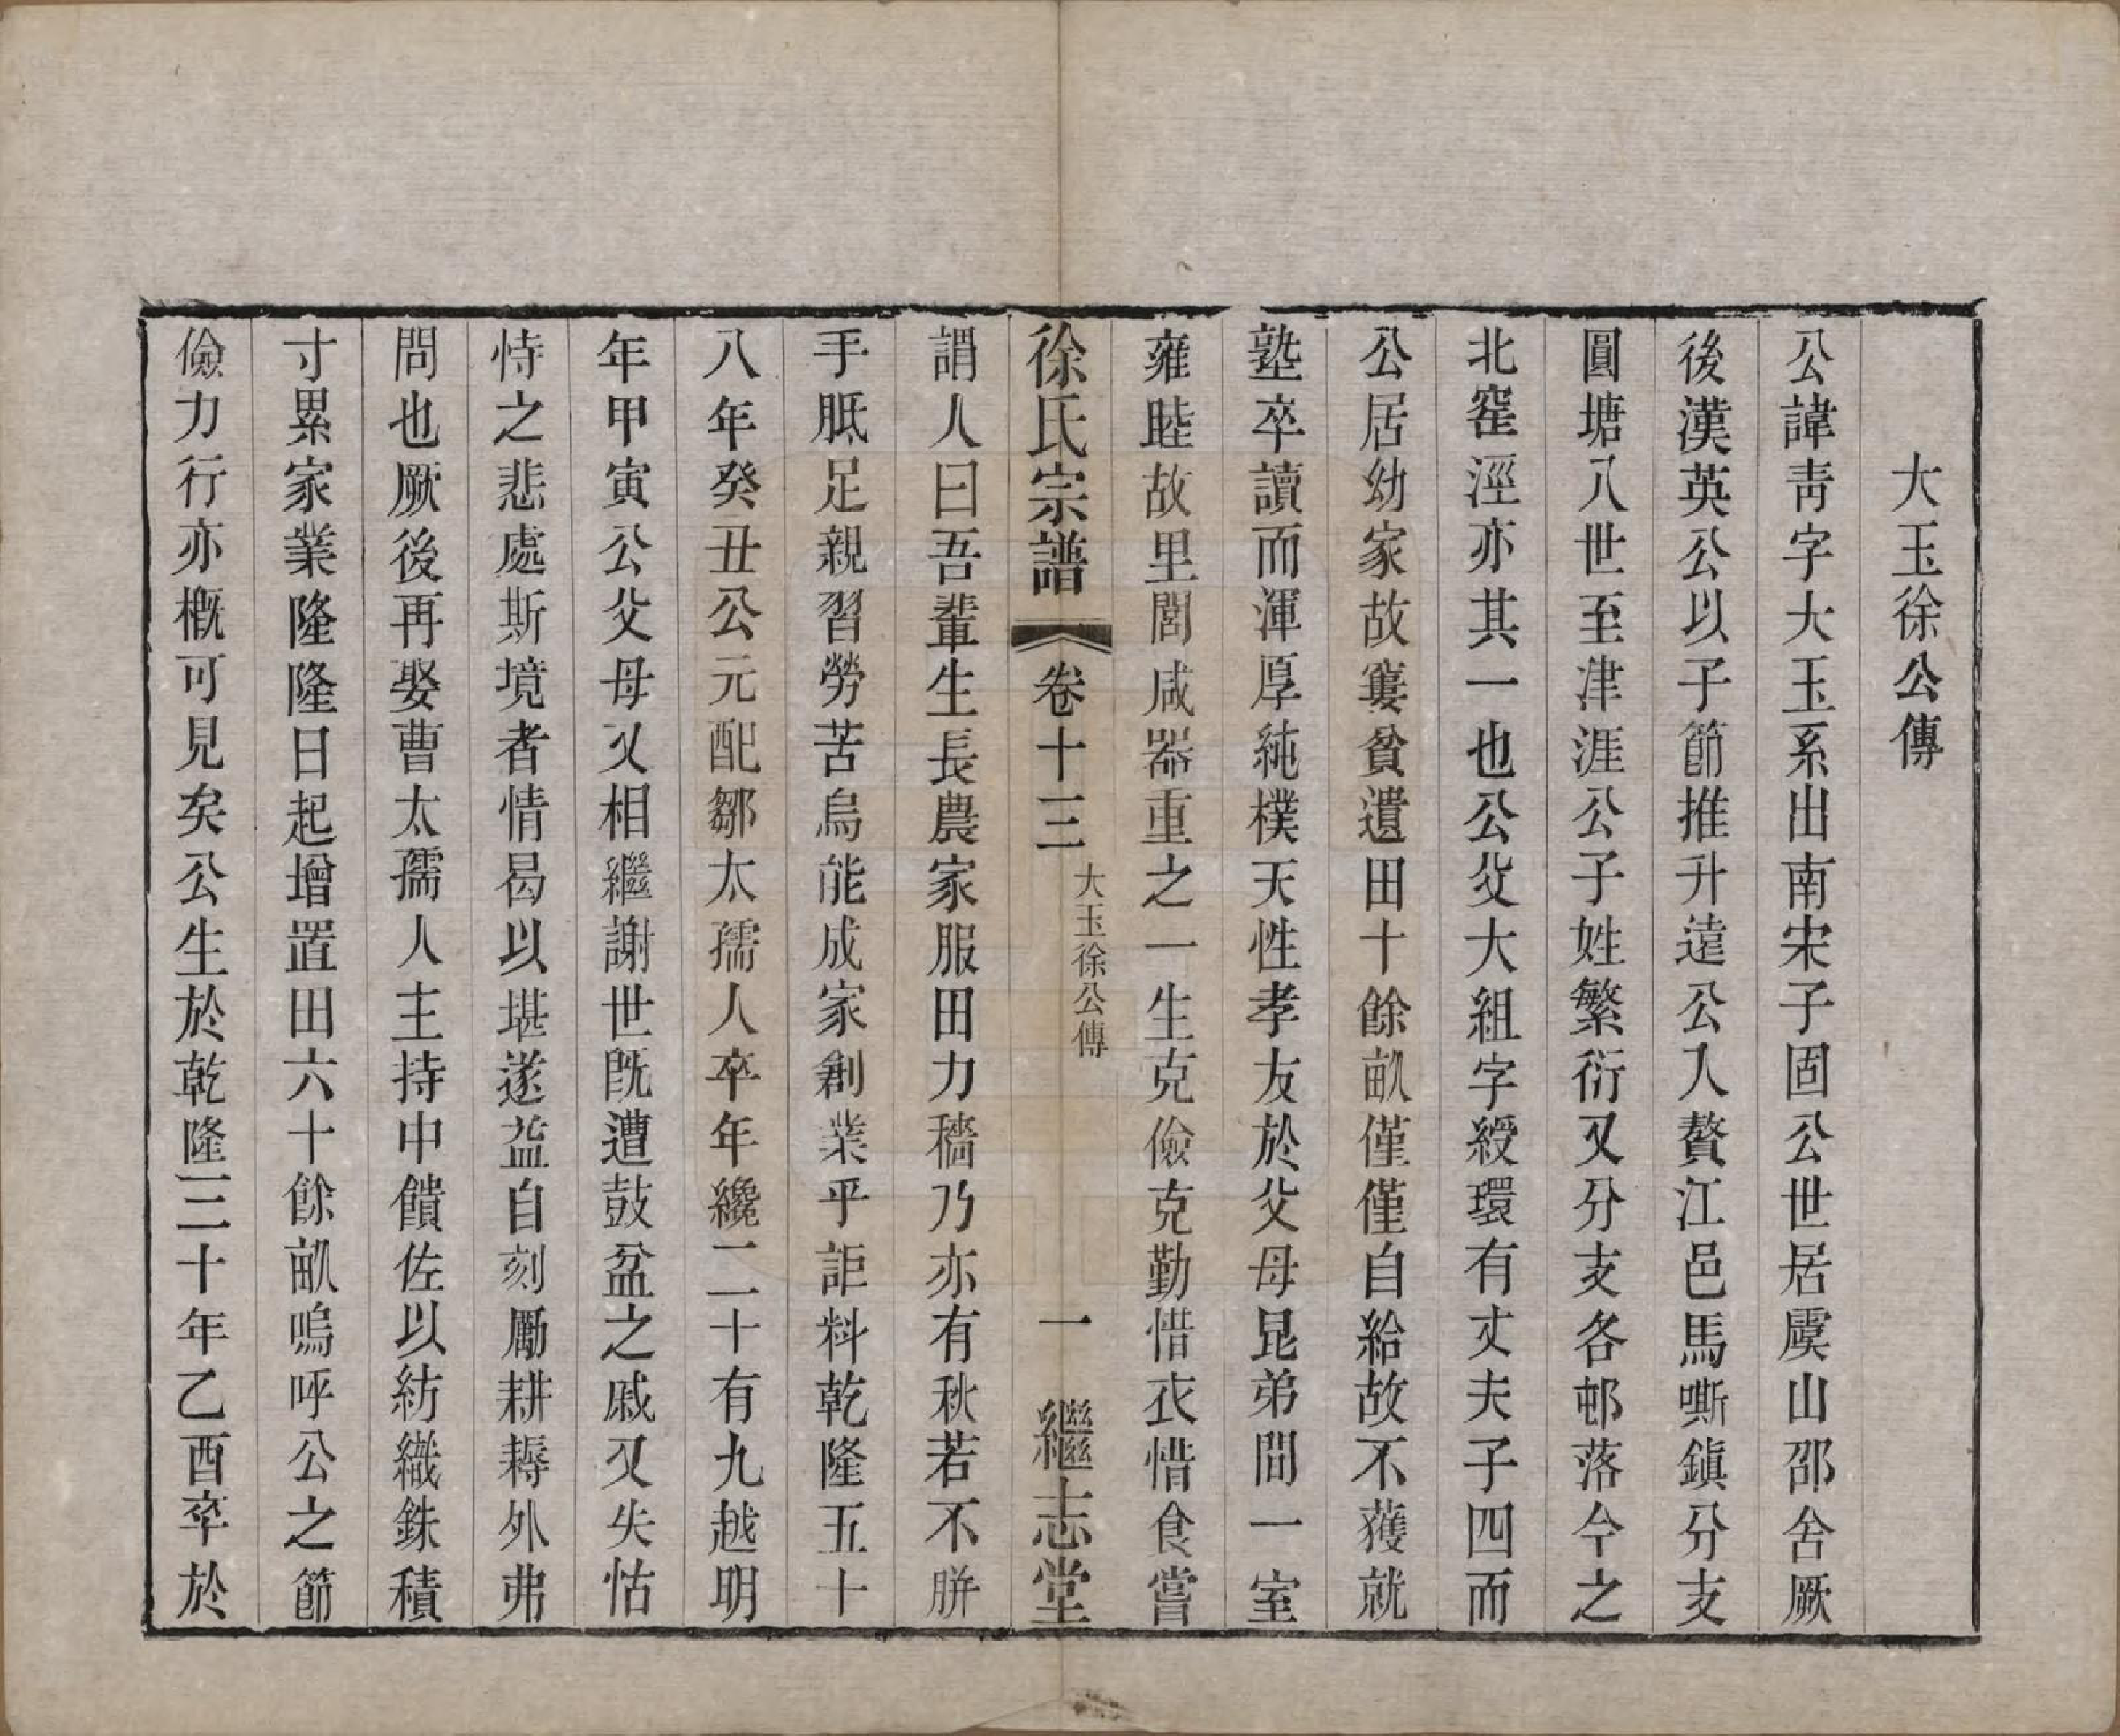 大玉徐公傳
公諱靑字大玉系出南宋子固公世居虞山邵舍厥
後漢英公以子節推升遠公入贅江邑馬嘶鎭分支
圓塘八世至津涯公子姓繁衍又分支各邨落今之
北窰涇亦其一也公父大組字綬環有丈夫子四而
公居幼家故窶貧遺田十餘畝僅僅自給故不獲就
塾卒讀而渾厚純樸天性孝友於父母昆弟間一室
雍睦故里閭咸器重之一生克儉克勤惜衣惜食嘗
徐氏宗譜 卷十三 大玉徐公傳 一 繼志堂
謂人曰吾輩生長農家服田力穡乃亦有秋若不胼
手胝足親習勞苦烏能成家創業乎詎料乾隆五十
八年癸丑公元配鄒太孺人卒年纔二十有九越明
年甲寅公父母又相繼謝世旣遭鼓盆之戚又失怙
恃之悲處斯境者情曷以堪遂益自刻勵耕耨外弗
問也厥後再娶曹太孺人主持中饋佐以紡織銖積
寸累家業隆隆日起增置田六十餘畝嗚呼公之節
儉力行亦槪可見矣公生於乾隆三十年乙酉卒於